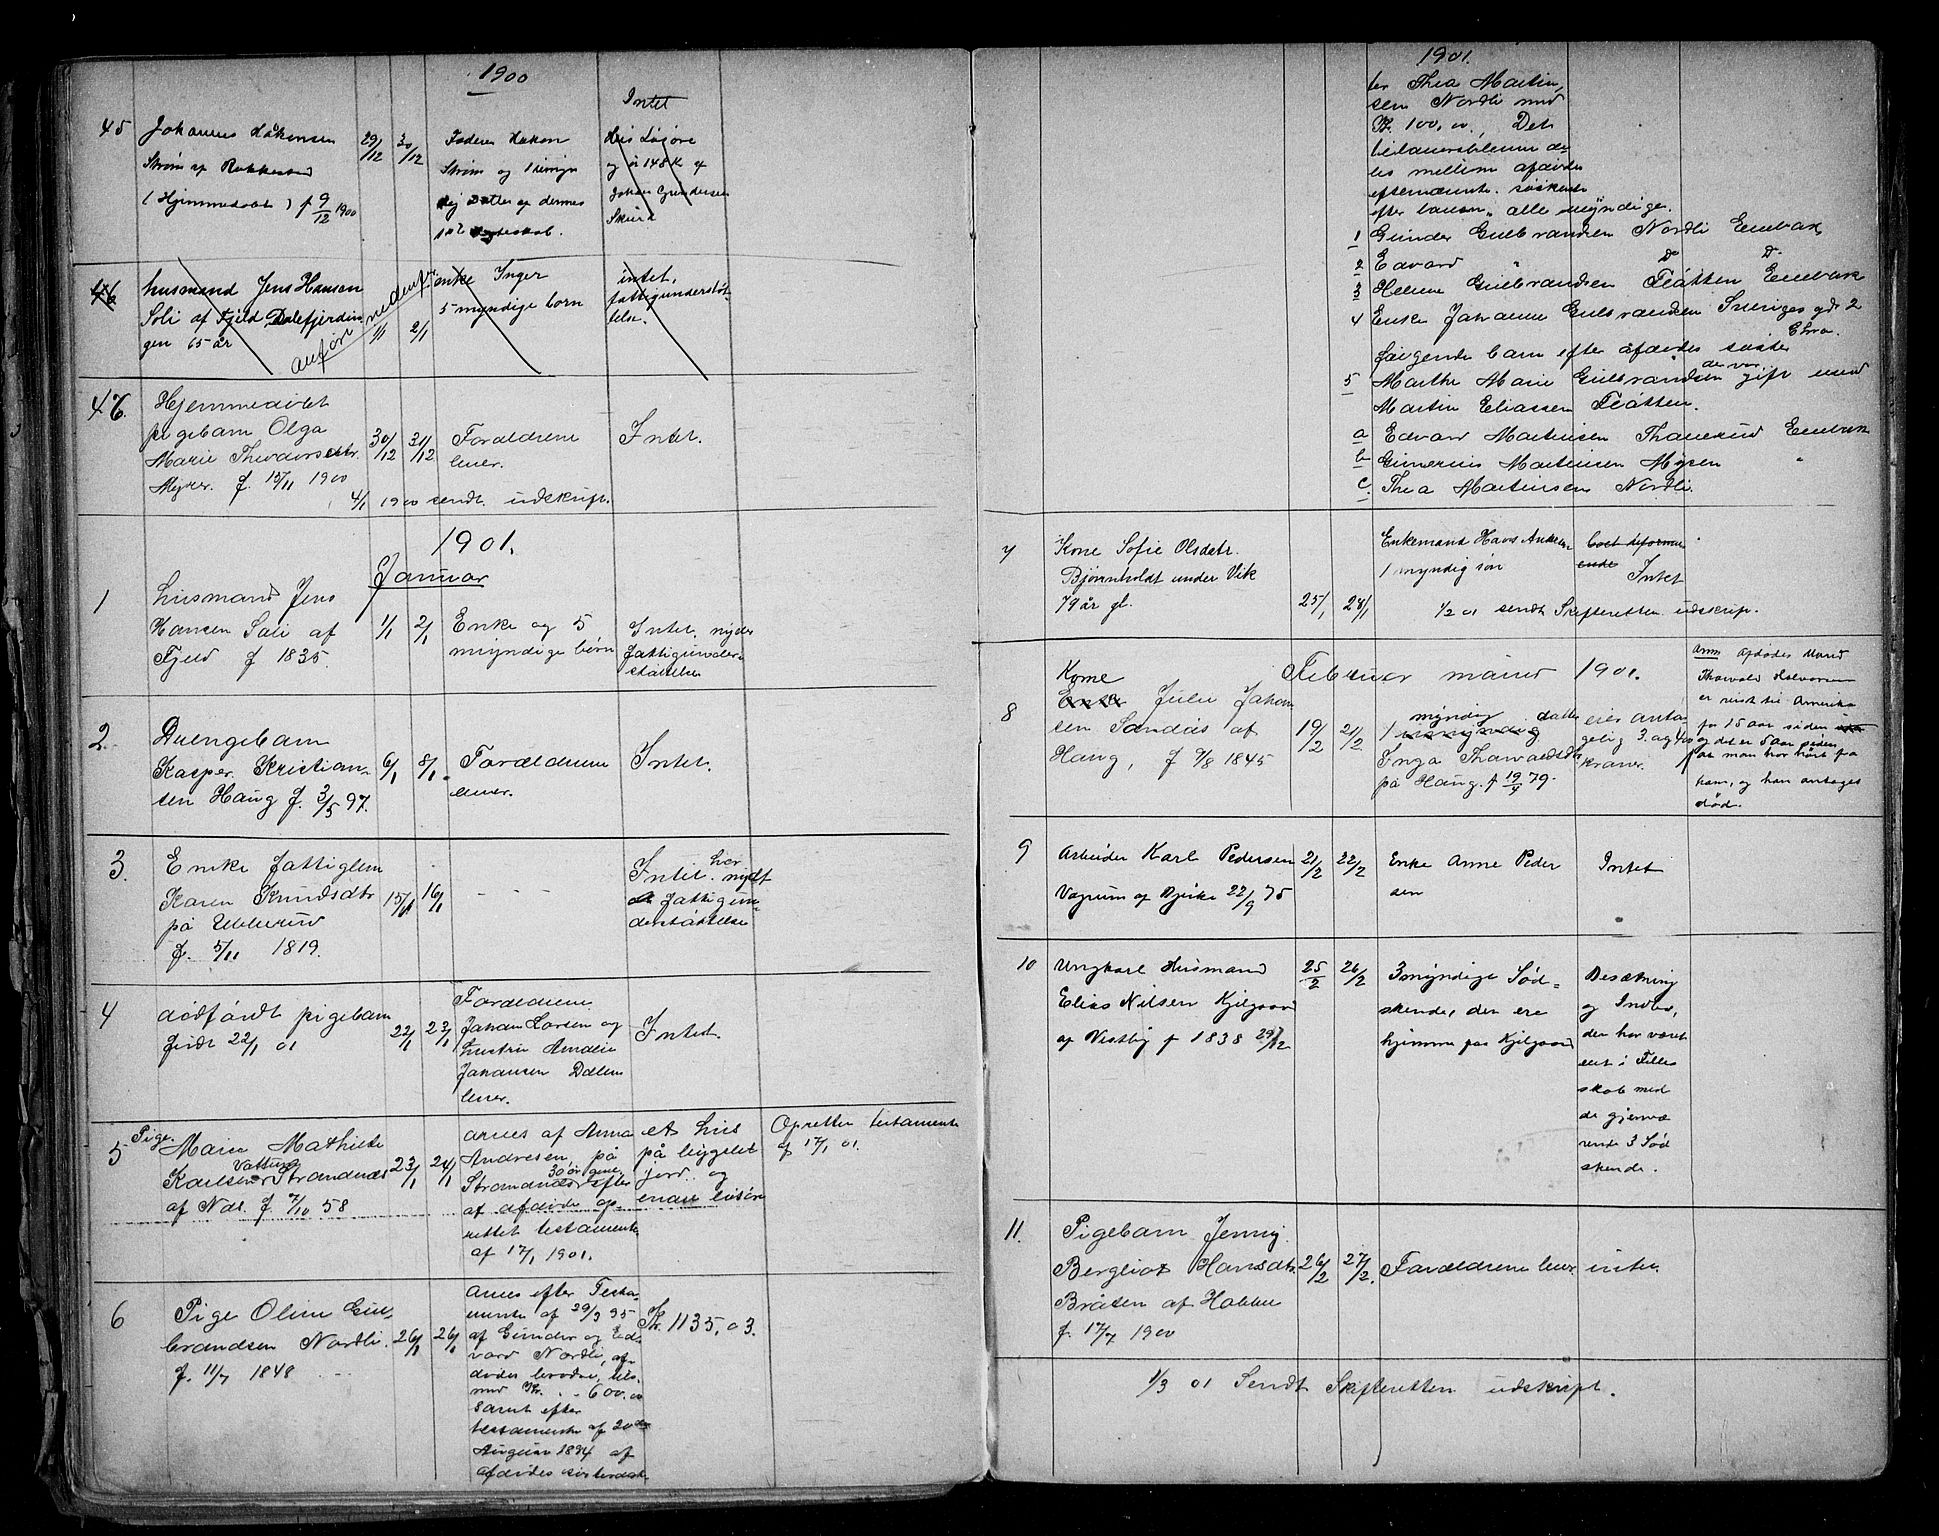 1900
45
Johannes Håkonsen
Strøm af Rakkestad
(Hjemmedøbt) f 9/12 1900
29/12
30/12
Faderen Hakon
Strøm og 1 umyn
dig Datter af dennes
1ste Ægteskab.
Intet
Hus Løsøre
og ör 148 K af
Johan Gundersen
46
husmand Jens Hansen
Soli af Fjeld, Dalefjerdin
gen 65 år
anført nedenfor
1/1
2/1
enke Inger
5 myndige born
intet,
fattigunderstøt
telse.
46.
Hjemmedøbt
pigebarn Olga
Marie Theodorsdtr.
Myrer. f. 15/11 1900
30/12
31/12
Forældrene
lever.
Intet.
4/1 1900 sendt udskrift.
1901.
Januar
1
husmand Jens
Hansen Soli af
Fjeld f 1835.
1/1
2/1
Enke og 5
myndige børn
Intet, nyder
fattigunder-
støttelse
2.
Drengebarn
Kasper Kristian-
sen Haug f. 3/5 97.
6/1
8/1
Forældrene
lever.
Intet.
3.
Enke fattiglem
Karen Knudsdtr
på Ullerud
f. 5/11 1819.
15/1
16/1
- - -
Intet. har nydt
fattigun-
derstøttelse
4
dødfødt pigebarn
født 22/1 01
22/1
23/1
Forældrene
Johan Larsen og
hustru Amalie
Johansen Dalen
lever.
Intet.
5
Pige.
Marie Mathilde
Karlsen Strandnæs
af Nds. f 7/10 58
23/1
24/1
arves af Anna
Andresen, på
Strandnæs efter
af afdøde op-
rettet testamente
af 17/1 1901.
et hus
på bygslet
jord, og
endel løsøre
Oprettet testamente
af 17/1 01.
6
Pige Oline Gul-
brandsen Nordli.
f. 11/7 1848
26/1
26/1
arves efter Testa-
mente af 29/3 95
af Gunder og Ed-
vard Nordli, af-
dødes brødre, til-
med Kr. 600.00
samt efter
testamente af 20de
August 1894 af
afdødes søsterdat-
Kr. 1135,03.
1901.
ter Thea Martin
sen Nordli med
Kr. 100.00, Det
tiloversblevne de-
les mellem afdødes
efternævnte søskende
efter loven, alle myndige.
1 Gunder Gulbrandsen Nordli Enebak
2 Edvard " Do Do
3 Helene Gulbrandsen Flåtten Enebak
4 Enke Johanne Gulbrandsen Sveriges gd. 2
Chra.
følgende barn efter afdødes søster
5 Marthe Marie Gulbrandsen der var gift med
Martin Eliassen Flåtten.
a Edvard Martinsen Thanerud Enebak
b Gunerius Martinsen Mysen "
c. Thea Martinsen Nordli.
7
Kone Sofie Olsdatr.
Bjørnholdt under Vik
79 år gl.
25/1
28/1
Enkemand Hans Andersen
1 myndig søn
Intet
1/2 01 sendt Skifteretten udskrift.
Februar måned 1901.
8
Kone
Enke Julie Johan
sen Sandås af
Haug, f 9/8 1845
19/2
21/2
1 myndig datter
Inga Thorvaldsdtr
på Haug. f 19/4 79.
eies anta-
gelig 3 ag 400
kroner.
Anm Afdødes Mand
Thorvald Halvorsen
er reist til Amerika
for 15 aar siden
og det er 5 aar siden
at man har hørt fra
ham, og han antages
død.
9
Arbeider Karl Pedersen
Vagrum af Dyrke 22/9 75
21/2
22/2
Enke Anne Peder
sen
Intet
10
Ungkarl Husmand
Elias Nilsen Kjilgaard
af Vestby f 1838 29/12
25/2
26/2
3 myndige Sød-
skende, der ere
hjemme paa Kjilgaard
Besætning
og Indbo,
der har været
eiet i Fælles
skab med
de gjenvæ
rende 3 Sød
skende.
11.
Pigebarn Jenny
Bergliot Hansdtr.
Bråten af Hakke
f. 17/7 1900
26/2
27/2.
Forældrene lever.
intet.
1/3 01 Sendt Skifteretten udskrift.